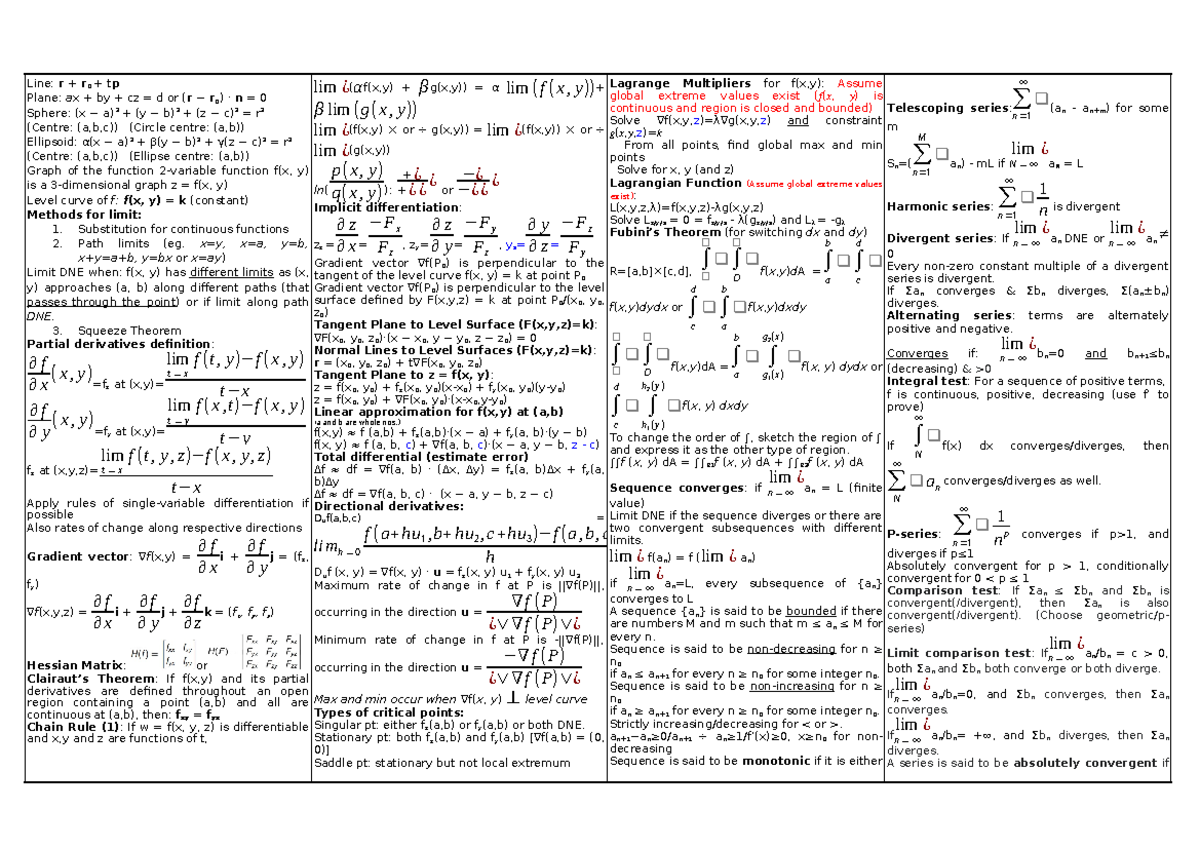 Line: r + r₀+ tp
Plane: ax + by + cz = d or (r − r₀) · n = 0
Sphere: (x − a)² + (y − b)² + (z − c)² = r²
(Centre: (a,b,c)) (Circle centre: (a,b))
Ellipsoid: α(x − a)² + β(y − b)² + γ(z − c)² = r²
(Centre: (a,b,c)) (Ellipse centre: (a,b))
Graph of the function 2-variable function f(x, y)
is a 3-dimensional graph z = f(x, y)
Level curve of f: f(x, y) = k (constant)
Methods for limit:
1. Substitution for continuous functions
2. Path limits (eg. x=y, x=a, y=b,
x+y=a+b, y=bx or x=ay)
Limit DNE when: f(x, y) has different limits as (x,
y) approaches (a, b) along different paths (that
passes through the point) or if limit along path
DNE.
3. Squeeze Theorem
Partial derivatives definition:
∂f/∂x (x,y)=fₓ at (x,y)= lim t→x f(t,y)−f(x,y) / t−x
∂f/∂y (x,y)=fᵧ at (x,y)= lim t→y f(x,t)−f(x,y) / t−y
fₓ at (x,y,z)= lim t→x f(t,y,z)−f(x,y,z) / t−x
Apply rules of single-variable differentiation if
possible
Also rates of change along respective directions
Gradient vector: ∇f(x,y) = ∂f/∂x i + ∂f/∂y j = (fₓ,
fᵧ)
∇f(x,y,z) = ∂f/∂x i + ∂f/∂y j + ∂f/∂z k = (fₓ, fᵧ, f_z)
Hessian Matrix: H(f) = |fₓₓ fₓᵧ fᵧₓ fᵧᵧ| or H(F)
Clairaut's Theorem: If f(x,y) and its partial
derivatives are defined throughout an open
region containing a point (a,b) and all are
continuous at (a,b), then: fₓᵧ = fᵧₓ
Chain Rule (1): If w = f(x, y, z) is differentiable
and x,y and z are functions of t,
lim ¿(αf(x,y) + βg(x,y)) = α lim (f(x,y))+
β lim (g(x,y))
lim ¿(f(x,y) × or ÷ g(x,y)) = lim ¿(f(x,y)) × or ÷
lim ¿(g(x,y))
ln( p(x,y)/q(x,y) ): +¿/+¿¿ ¿ or −¿/−¿¿ ¿
Implicit differentiation:
zₓ = ∂z/∂x = −Fₓ/F_z , zᵧ = ∂z/∂y = −Fᵧ/F_z , yₓ= ∂y/∂z = −F_z/Fᵧ
Gradient vector ∇f(P₀) is perpendicular to the
tangent of the level curve f(x, y) = k at point P₀
Gradient vector ∇f(P₀) is perpendicular to the level
surface defined by F(x,y,z) = k at point P₀/(x₀, y₀,
z₀)
Tangent Plane to Level Surface (F(x,y,z)=k):
∇F(x₀, y₀, z₀)·(x − x₀, y − y₀, z − z₀) = 0
Normal Lines to Level Surfaces (F(x,y,z)=k):
r = (x₀, y₀, z₀) + t∇F(x₀, y₀, z₀)
Tangent Plane to z = f(x, y):
z = f(x₀, y₀) + fₓ(x₀, y₀)(x-x₀) + fᵧ(x₀, y₀)(y-y₀)
z = f(x₀, y₀) + ∇F(x₀, y₀)·(x-x₀,y-y₀)
Linear approximation for f(x,y) at (a,b)
(a and b are whole nos.)
f(x,y) ≈ f (a,b) + fₓ(a,b)·(x − a) + fᵧ(a, b)·(y − b)
f(x, y) ≈ f (a, b, c) + ∇f(a, b, c)·(x − a, y − b, z - c)
Total differential (estimate error)
Δf ≈ df = ∇f(a, b) · (Δx, Δy) = fₓ(a, b)Δx + fᵧ(a,
b)Δy
Δf ≈ df = ∇f(a, b, c) · (x − a, y − b, z − c)
Directional derivatives:
Dᵤf(a,b,c) =
lim h→0 f(a+hu₁,b+hu₂,c+hu₃)−f(a,b,c / h
Dᵤf (x, y) = ∇f(x, y) · u = fₓ(x, y) u₁ + fᵧ(x, y) u₂
Maximum rate of change in f at P is ||∇f(P)||,
occurring in the direction u = ∇f(P) / ¿∨∇f(P)∨¿
Minimum rate of change in f at P is -||∇f(P)||,
occurring in the direction u = −∇f(P) / ¿∨∇f(P)∨¿
Max and min occur when ∇f(x, y) ⊥ level curve
Types of critical points:
Singular pt: either fₓ(a,b) or fᵧ(a,b) or both DNE.
Stationary pt: both fₓ(a,b) and fᵧ(a,b) [∇f(a,b) = (0,
0)]
Saddle pt: stationary but not local extremum
Lagrange Multipliers for f(x,y): Assume
global extreme values exist (f(x, y) is
continuous and region is closed and bounded)
Solve ∇f(x,y,z)=λ∇g(x,y,z) and constraint
g(x,y,z)=k
From all points, find global max and min
points
Solve for x, y (and z)
Lagrangian Function (Assume global extreme values
exist):
L(x,y,z,λ)=f(x,y,z)-λg(x,y,z)
Solve Lₓ/ᵧ/z = 0 = fₓ/ᵧ/z - λ(gₓ/ᵧ/z) and L_λ = -g_λ
Fubini's Theorem (for switching dx and dy)
R=[a,b]×[c,d], ∫∫ D f(x,y)dA = ∫ₐᵇ ∫c^d
f(x,y)dydx or ∫c^d ∫ₐᵇ f(x,y)dxdy
∫∫ D f(x,y)dA = ∫ₐᵇ ∫g₁(x)^g₂(x) f(x, y) dydx or
∫c^d ∫h₁(y)^h₂(y) f(x, y) dxdy
To change the order of ∫, sketch the region of ∫
and express it as the other type of region.
Sequence converges: if lim ¿ n→∞ aₙ = L (finite
value)
Limit DNE if the sequence diverges or there are
two convergent subsequences with different
limits.
lim ¿ f(aₙ) = f (lim ¿ aₙ)
if lim ¿ n→∞ aₙ=L, every subsequence of {aₙ}
converges to L
A sequence {aₙ} is said to be bounded if there
are numbers M and m such that m ≤ aₙ ≤ M for
every n.
Sequence is said to be non-decreasing for n ≥
n₀
if aₙ ≤ aₙ₊₁ for every n ≥ n₀ for some integer n₀.
Sequence is said to be non-increasing for n ≥
n₀
if aₙ ≥ aₙ₊₁ for every n ≥ n₀ for some integer n₀.
Strictly increasing/decreasing for < or >.
aₙ₊₁−aₙ≥0/aₙ₊₁ ÷ aₙ≥1/f'(x)≥0, x≥n₀ for non-
decreasing
Sequence is said to be monotonic if it is either
Telescoping series: ∑ n=1 ∞ (aₙ - aₙ₊ₘ) for some
m
Sₙ=(∑ n=1 M aₙ) - mL if lim ¿ N→∞ aₙ = L
Harmonic series: ∑ n=1 ∞ 1/n is divergent
Divergent series: If lim ¿ n→∞ aₙ DNE or lim ¿ n→∞ aₙ ≠
0
Every non-zero constant multiple of a divergent
series is divergent.
If Σaₙ converges & Σbₙ diverges, Σ(aₙ±bₙ)
diverges.
Alternating series: terms are alternately
positive and negative.
Converges if: lim ¿ n→∞ bₙ=0 and bₙ₊₁≤bₙ
(decreasing) & >0
Integral test: For a sequence of positive terms,
f is continuous, positive, decreasing (use f' to
prove)
If ∫ N ∞ f(x) dx converges/diverges, then
∑ N ∞ aₙ converges/diverges as well.
P-series: ∑ n=1 ∞ 1/nᵖ converges if p>1, and
diverges if p≤1
Absolutely convergent for p > 1, conditionally
convergent for 0 < p ≤ 1
Comparison test: If Σaₙ ≤ Σbₙ and Σbₙ is
convergent(/divergent), then Σaₙ is also
convergent(/divergent). (Choose geometric/p-
series)
Limit comparison test: If lim ¿ n→∞ aₙ/bₙ = c > 0,
both Σaₙ and Σbₙ both converge or both diverge.
If lim ¿ n→∞ aₙ/bₙ=0, and Σbₙ converges, then Σaₙ
converges.
If lim ¿ n→∞ aₙ/bₙ= +∞, and Σbₙ diverges, then Σaₙ
diverges.
A series is said to be absolutely convergent if